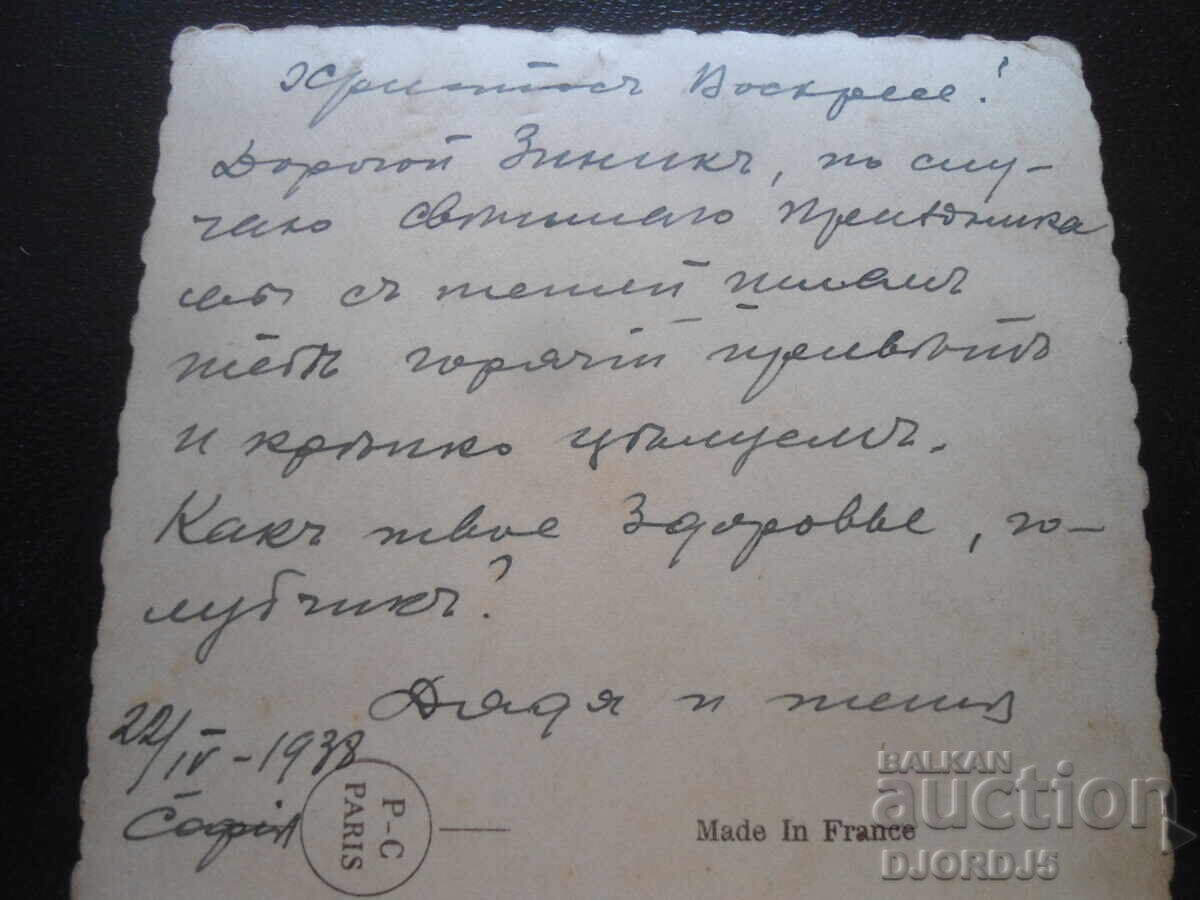 Христосъ Воскресе!
Дорогой Зиникъ, по слу-
чаю свѣтлаго праздника
мы съ тетей шлемъ
тебѣ горячій привѣтъ
и крѣпко цѣлуемъ.
Какъ твое здоровье, го-
лубчикъ?
Дядя и тетя
22/IV-1938
Софія
P-C
PARIS
Made In France
BALKAN
auction
DJORDJ5